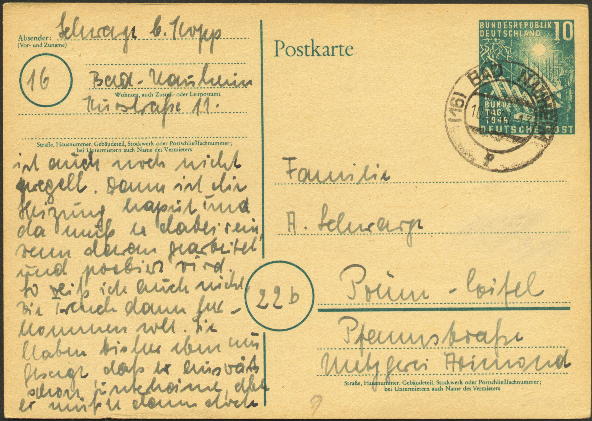 Absender: Schwarz b. Kopp
(Vor- und Zuname)
16
Bad-Nauheim
Wohnort, auch Zustell- oder Leitpostamt
Kurstraße 11.
Straße, Hausnummer, Gebäudeteil, Stockwerk oder Postschließfachnummer;
bei Untermietern auch Name des Vermieters
ist auch noch nicht
geregelt. Dann ist die
Heizung kaput und
da muß er dabei sein,
wenn daran gearbeitet
und probiert wird
so weiß ich auch nicht
die dann
kommen soll. Sie
haben bisher eben nur
gesagt daß er auswärts
schon, der
er müßte dann doch
Postkarte
BUNDESREPUBLIK
DEUTSCHLAND
10
BUNDES
TAG
1949
DEUTSCHE POST
(16) BAD NAUHEIM
Familie
A. Schwarz
22b
Prüm-Eifel
Straße, Hausnummer, Gebäudeteil, Stockwerk oder Postschließfachnummer;
bei Untermietern auch Name des Vermieters
Metzgerei